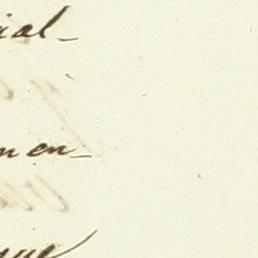 ial-
en-
que